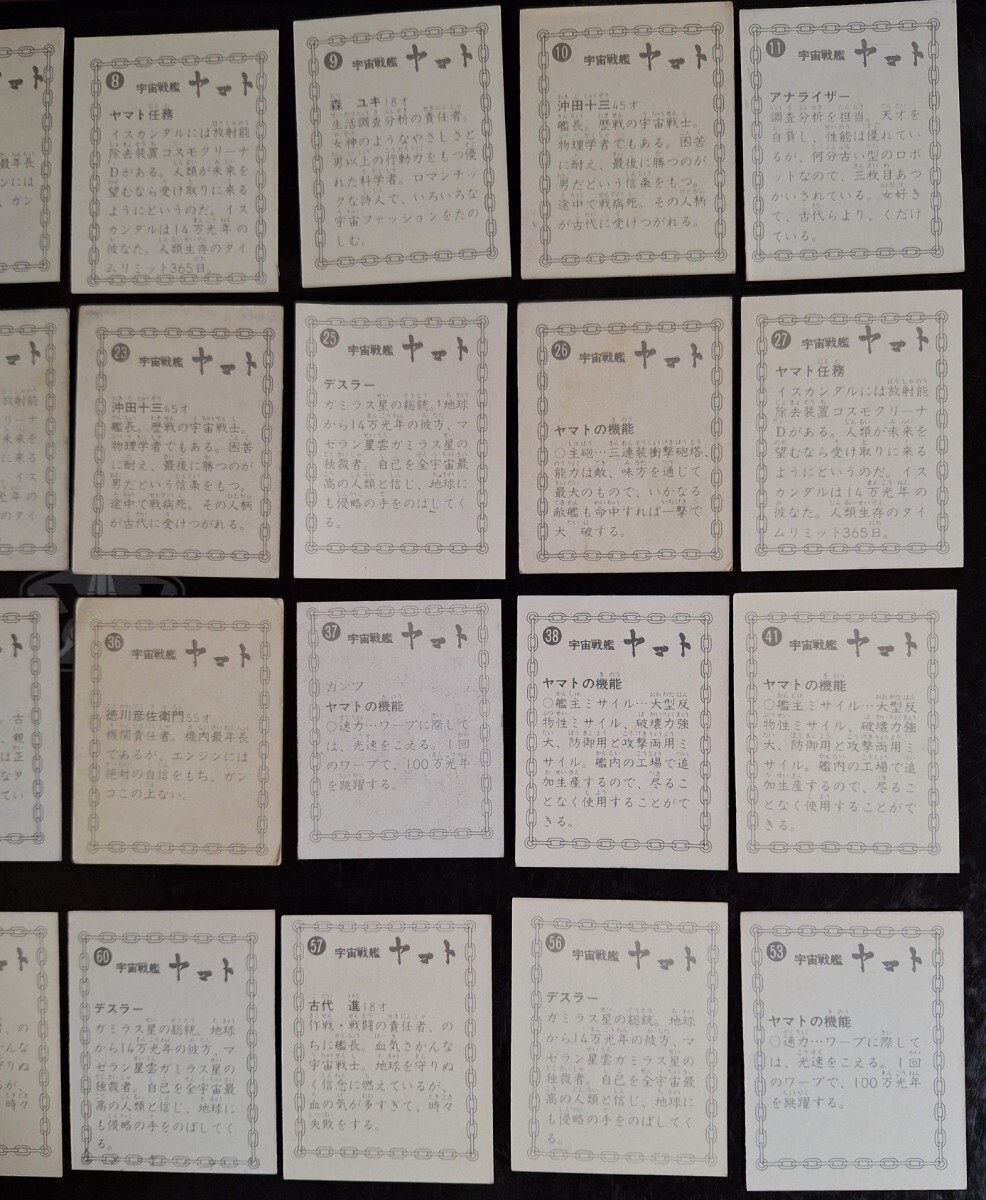 ヤマト
最年長
ンには
、ガン
8 宇宙戦艦 ヤマト
ヤマト任務
イスカンダルには放射能
除去装置コスモクリーナ
Dがある。人類が未来を
望むなら受け取りに来る
ようにというのだ。イス
カンダルは14万光年の
彼なた。人類生存のタイ
ムリミット365日。
9 宇宙戦艦 ヤマト
森 ユキ18才
生活調査分析の責任者。
女神のようなやさしさと
男以上の行動力をもつ優
れた科学者。ロマンチッ
クな詩人で、いろいろな
宇宙ファッションをたの
しむ。
10 宇宙戦艦 ヤマト
沖田十三45才
艦長。歴戦の宇宙戦士。
物理学者でもある。困苦
に耐え、最後に勝つのが
男だという信条をもつ。
途中で戦病死。その人柄
が古代に受けつがれる。
11 宇宙戦艦 ヤマト
アナライザー
調査分析を担当。天才を
自負し、性能は優れてい
るが、何分古い型のロボ
ットなので、三枚目あつ
かいされている。女好き
で、古代らより、くだけ
ている。
放射能
リーナ
未来を
に来る
。イス
光年の
のタイ
23 宇宙戦艦 ヤマト
沖田十三45才
艦長。歴戦の宇宙戦士。
物理学者でもある。困苦
に耐え、最後に勝つのが
男だという信条をもつ。
途中で戦病死。その人柄
が古代に受けつがれる。
25 宇宙戦艦 ヤマト
デスラー
ガミラス星の総統。地球
から14万光年の彼方、マ
ゼラン星雲ガミラス星の
独裁者。自己を全宇宙最
高の人類と信じ、地球に
も侵略の手をのばしてく
る。
26 宇宙戦艦 ヤマト
ヤマトの機能
○主砲…三連装衝撃砲塔、
能力は敵、味方を通じて
最大のもので、いかなる
敵艦も命中すれば一撃で
大 破する。
27 宇宙戦艦 ヤマト
ヤマト任務
イスカンダルには放射能
除去装置コスモクリーナ
Dがある。人類が未来を
望むなら受け取りに来る
ようにというのだ。イス
カンダルは14万光年の
彼なた。人類生存のタイ
ムリミット365日。
、古
、親
は正
なタ
てい
36 宇宙戦艦 ヤマト
徳川彦佐衛門55才
機関責任者。機内最年長
であるが、エンジンには
絶対の自信をもち、ガン
コこの上ない。
37 宇宙戦艦 ヤマト
ガンツ
ヤマトの機能
○速力…ワープに際して
は、光速をこえる。1回
のワープで、100万光年
を跳躍する。
38 宇宙戦艦 ヤマト
ヤマトの機能
○艦主ミサイル…大型反
物性ミサイル、破壊力強
大、防御用と攻撃両用ミ
サイル。艦内の工場で追
加生産するので、尽るこ
となく使用することがで
きる。
41 宇宙戦艦 ヤマト
ヤマトの機能
○艦主ミサイル…大型反
物性ミサイル、破壊力強
大、防御用と攻撃両用ミ
サイル。艦内の工場で追
加生産するので、尽るこ
となく使用することがで
きる。
、の
かんな
守りぬ
るが、
時々
60 宇宙戦艦 ヤマト
デスラー
ガミラス星の総統。地球
から14万光年の彼方、マ
ゼラン星雲ガミラス星の
独裁者。自己を全宇宙最
高の人類と信じ、地球に
も侵略の手をのばしてく
る。
57 宇宙戦艦 ヤマト
古代 進18才
作戦・戦闘の責任者、の
ちに艦長。血気さかんな
宇宙戦士。地球を守りぬ
く信念に燃えているが、
血の気が多すぎて、時々
失敗をする。
56 宇宙戦艦 ヤマト
デスラー
ガミラス星の総統。地球
から14万光年の彼方、マ
ゼラン星雲ガミラス星の
独裁者。自己を全宇宙最
高の人類と信じ、地球に
も侵略の手をのばしてく
る。
53 宇宙戦艦 ヤマト
ヤマトの機能
○速力…ワープに際して
は、光速をこえる。1回
のワープで、100万光年
を跳躍する。